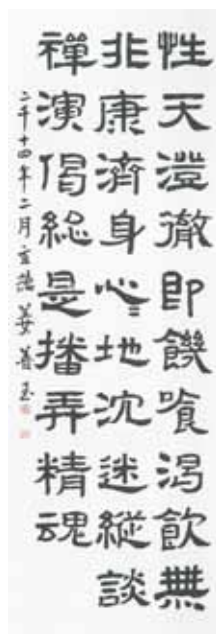 性天澄徹即饑喰渴飲無
非康濟身心地沈迷縱談
禪演偈總是播弄精魂
二千十四年二月